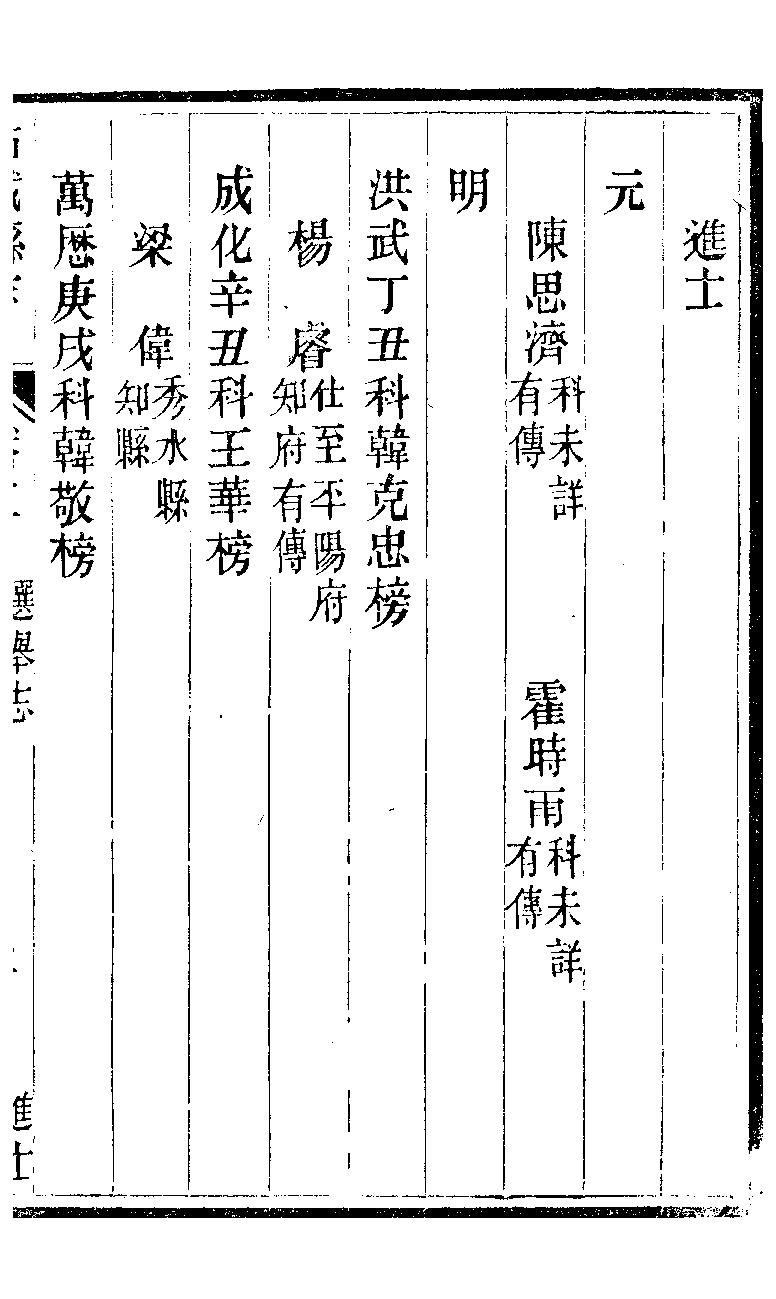 進士
元
陳思濟科未詳有傳 霍時雨科未詳有傳
明
洪武丁丑科韓克忠榜
楊睿仕至平陽府知府有傳
成化辛丑科王華榜
梁偉秀水縣知縣
萬厯庚戌科韓敬榜
選舉志 進士